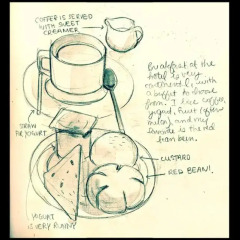 COFFEE IS SERVED
WITH SWEET
CREAMER
Breakfast at the
hotel is very
continental, with
a buffet to choose
from. I like coffee,
yogurt, fruit (
melon), and my
favorite is the red
bean bun.
STRAW
FOR YOGURT
CUSTARD
RED BEAN!
YOGURT
IS VERY RUNNY